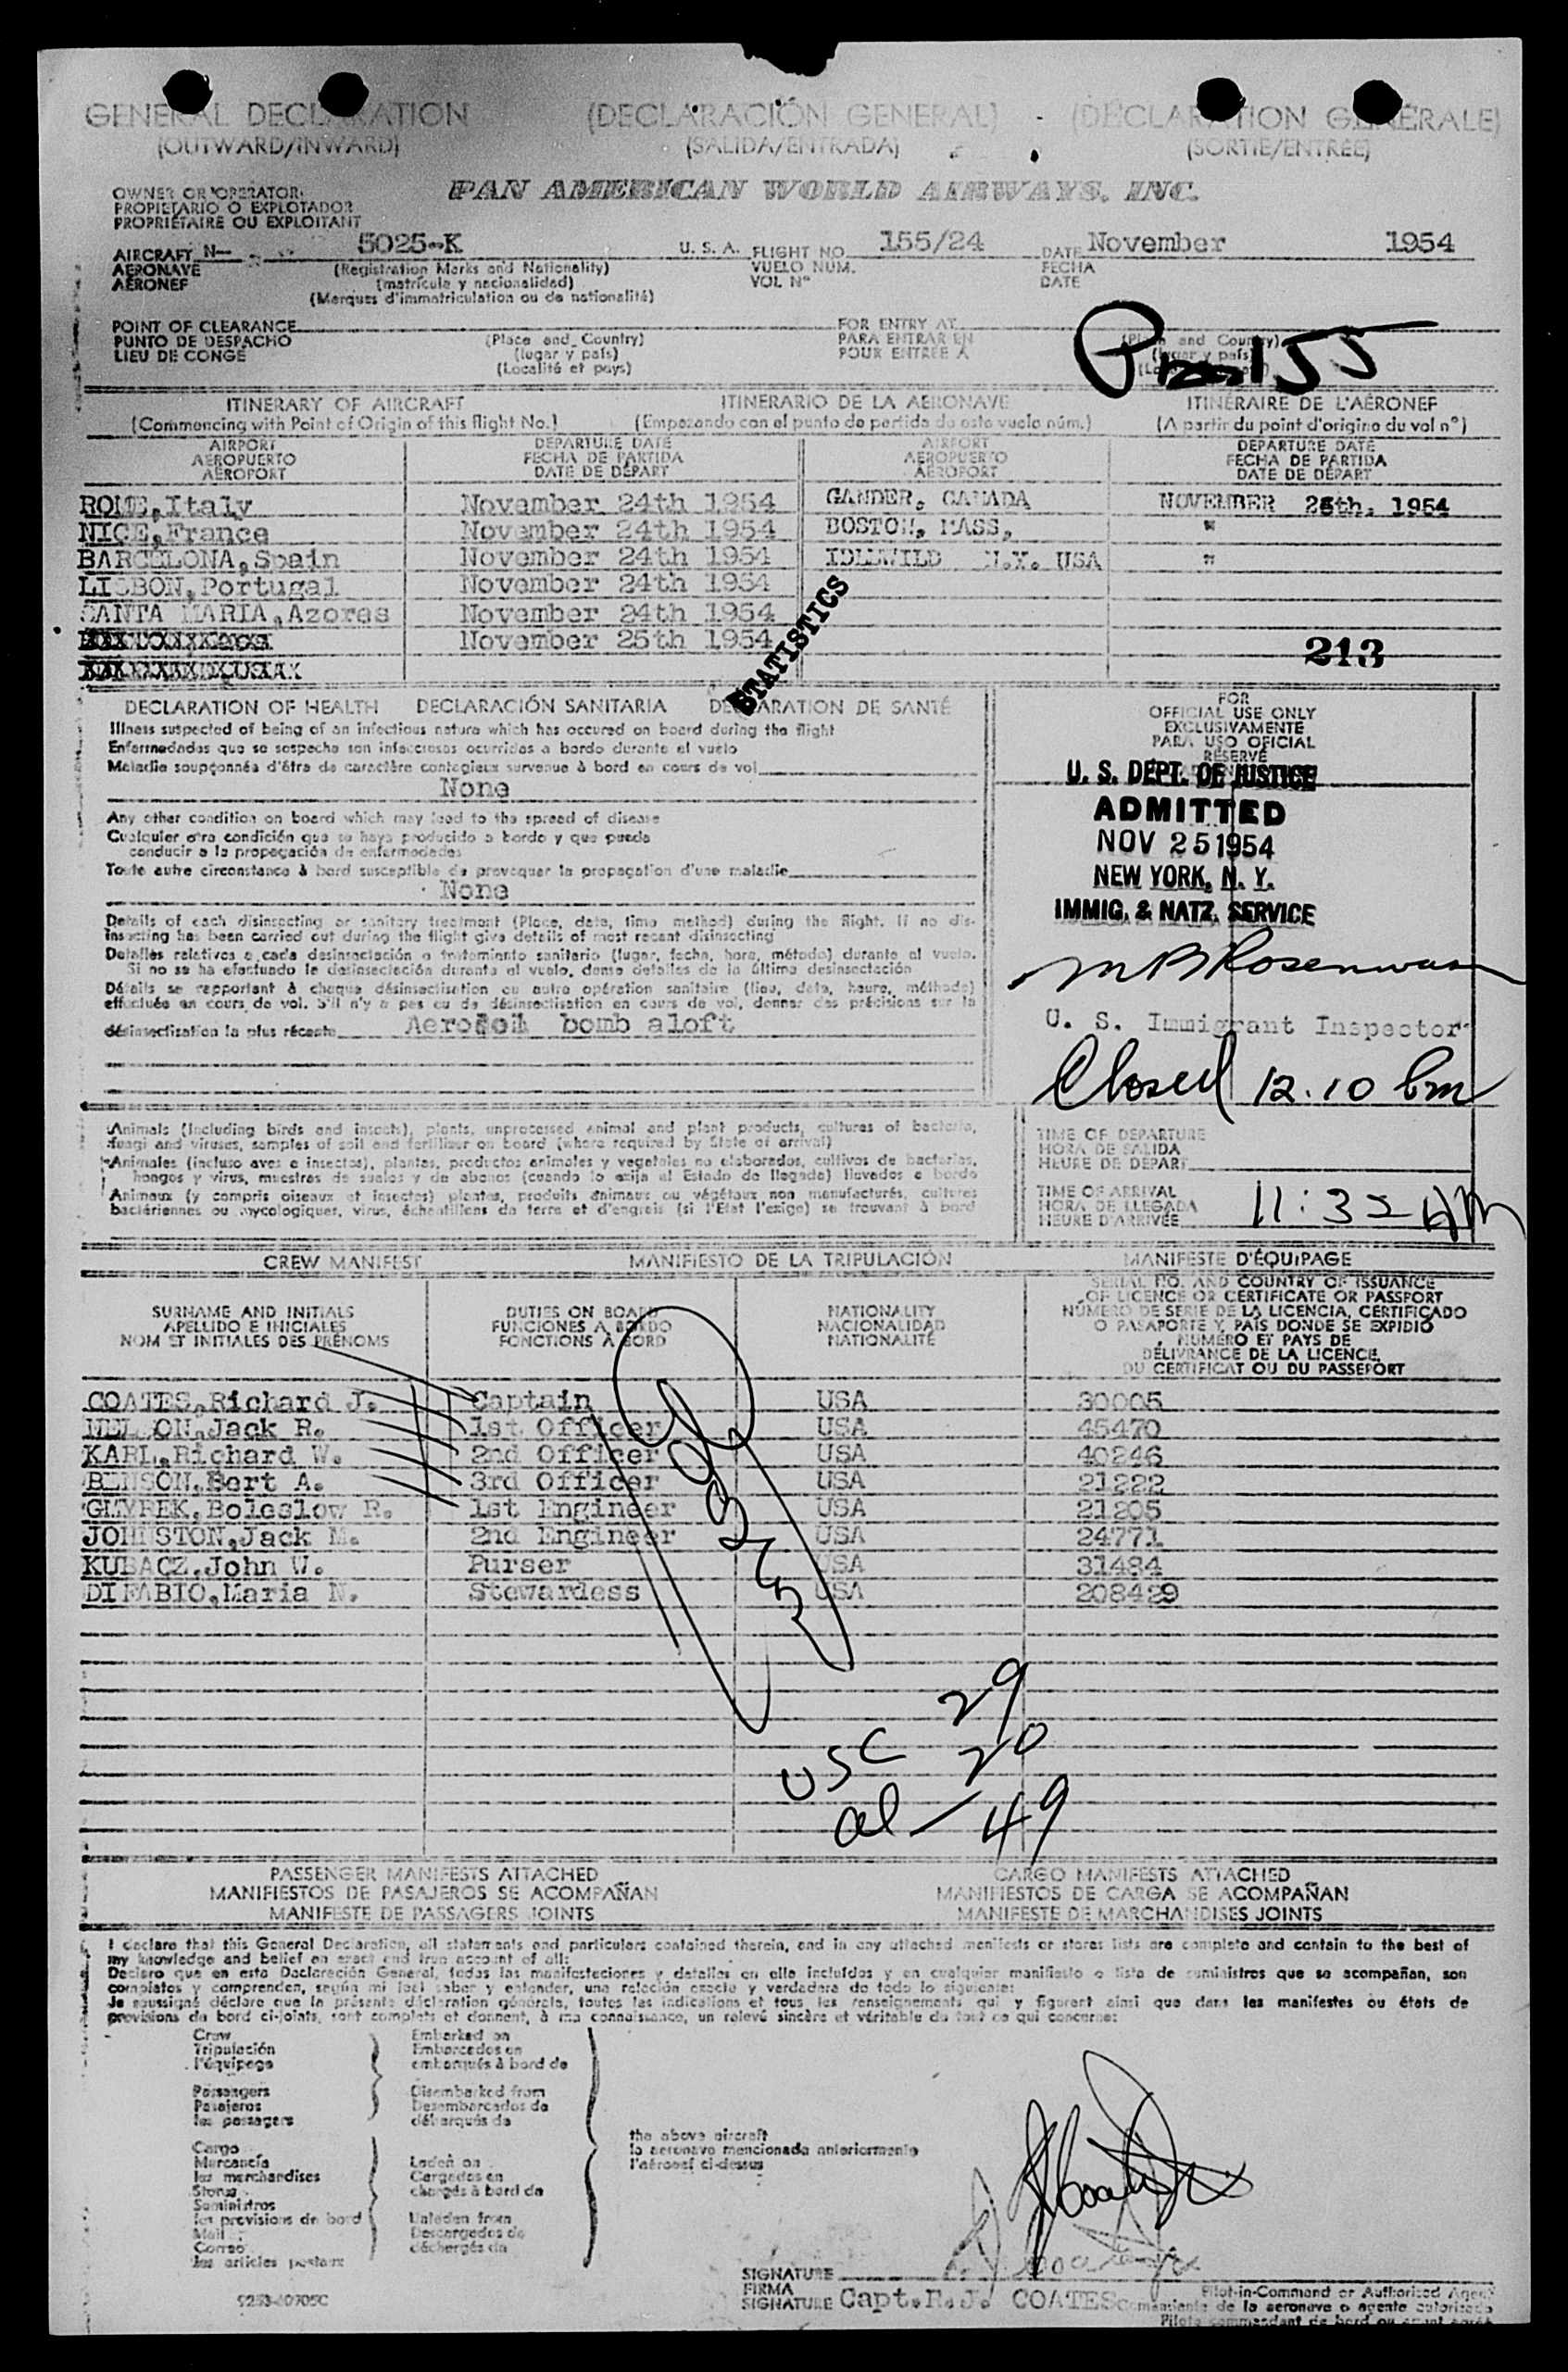 GENERAL DECLARATION (DECLARACIÓN GENERAL) (DÉCLARATION GÉNÉRALE)
(OUTWARD/INWARD) (SALIDA/ENTRADA) (SORTIE/ENTRÉE)
OWNER OR OPERATOR: PAN AMERICAN WORLD AIRWAYS, INC.
PROPIETARIO O EXPLOTADOR
PROPRIÉTAIRE OU EXPLOITANT
AIRCRAFT N— 5025-K U. S. A. FLIGHT NO. 155/24 DATE November 1954
AERONAVE (Registration Marks and Nationality) VUELO NÚM. FECHA
AÉRONEF (matrícula y nacionalidad) VOL Nº DATE
(Marques d'immatriculation ou de nationalité)
POINT OF CLEARANCE FOR ENTRY AT
PUNTO DE DESPACHO (Place and Country) PARA ENTRAR EN (Place and Country)
LIEU DE CONGÉ (lugar y país) POUR ENTRÉE A (lugar y país)
(Localité et pays)
155
ITINERARY OF AIRCRAFT ITINERARIO DE LA AERONAVE ITINÉRAIRE DE L'AÉRONEF
(Commencing with Point of Origin of this flight No.) (Empezando con el punto de partida de este vuelo núm.) (A partir du point d'origine du vol nº)
AIRPORT DEPARTURE DATE AIRPORT DEPARTURE DATE
AEROPUERTO FECHA DE PARTIDA AEROPUERTO FECHA DE PARTIDA
AÉROPORT DATE DE DÉPART AÉROPORT DATE DE DÉPART
ROME, Italy November 24th 1954 GANDER, CANADA NOVEMBER 25th, 1954
NICE, France November 24th 1954 BOSTON, MASS, "
BARCELONA, Spain November 24th 1954 IDLEWILD N.Y. USA "
LISBON, Portugal November 24th 1954
SANTA MARIA, Azores November 24th 1954
November 25th 1954
STATISTICS
213
DECLARATION OF HEALTH DECLARACIÓN SANITARIA DÉCLARATION DE SANTÉ
Illness suspected of being of an infectious nature which has occured on board during the flight
Enfermedades que se sospecha son infecciosas ocurridas a bordo durante el vuelo
Maladie soupçonnée d'être de caractère contagieux survenue à bord en cours de vol
None
Any other condition on board which may lead to the spread of disease
Cualquier otra condición que se haya producido a bordo y que pueda
conducir a la propagación de enfermedades
Toute autre circonstance à bord susceptible de provoquer la propagation d'une maladie
None
Details of each disinsecting or sanitary treatment (Place, date, time method) during the flight. If no dis-
insecting has been carried out during the flight give details of most recent disinsecting
Detalles relativos a cada desinsectación o tratamiento sanitario (lugar, fecha, hora, método) durante el vuelo.
Si no se ha efectuado la desinsectación durante el vuelo, dense detalles de la última desinsectación
Détails se rapportant à chaque désinsectisation ou autre opération sanitaire (lieu, date, heure, méthode)
effectuée en cours de vol. S'il n'y a pas eu de désinsectisation en cours de vol, donner des précisions sur la
désinsectisation la plus récente Aerosol bomb aloft
FOR
OFFICIAL USE ONLY
EXCLUSIVAMENTE
PARA USO OFICIAL
RÉSERVÉ
U. S. DEPT. OF JUSTICE
ADMITTED
NOV 25 1954
NEW YORK, N. Y.
IMMIG. & NATZ. SERVICE
U. S. Immigrant Inspector
Closed 12.10 pm
Animals (Including birds and insects), plants, unprocessed animal and plant products, cultures of bacteria,
fungi and viruses, samples of soil and fertilizer on board (where required by State of arrival)
Animales (incluso aves e insectos), plantas, productos animales y vegetales no elaborados, cultivos de bacterias,
hongos y virus, muestras de suelos y de abonos (cuando lo exija el Estado de llegada) llevados a bordo
Animaux (y compris oiseaux et insectes) plantes, produits animaux ou végétaux non manufacturés, cultures
bactériennes ou mycologiques, virus, échantillons de terre et d'engrais (si l'Etat l'exige) se trouvant à bord
TIME OF DEPARTURE
HORA DE SALIDA
HEURE DE DÉPART
TIME OF ARRIVAL
HORA DE LLEGADA 11:32 AM
HEURE D'ARRIVÉE
CREW MANIFEST MANIFIESTO DE LA TRIPULACIÓN MANIFESTE D'ÉQUIPAGE
SURNAME AND INITIALS DUTIES ON BOARD NATIONALITY SERIAL NO. AND COUNTRY OF ISSUANCE
APELLIDO E INICIALES FUNCIONES A BORDO NACIONALIDAD OF LICENCE OR CERTIFICATE OR PASSPORT
NOM ET INITIALES DES PRÉNOMS FONCTIONS À BORD NATIONALITÉ NÚMERO DE SERIE DE LA LICENCIA, CERTIFICADO
O PASAPORTE Y PAÍS DONDE SE EXPIDIÓ
NUMÉRO ET PAYS DE
DÉLIVRANCE DE LA LICENCE,
DU CERTIFICAT OU DU PASSEPORT
COATES, Richard J. Captain USA 30005
NELSON, Jack R. 1st Officer USA 45470
KARL, Richard W. 2nd Officer USA 40246
BENSON, Bert A. 3rd Officer USA 21222
GLYREK, Boleslow R. 1st Engineer USA 21205
JOHNSTON, Jack M. 2nd Engineer USA 24771
KUBACZ, John W. Purser USA 31484
DI FABIO, Maria N. Stewardess USA 208429
USC 29
al — 20
49
PASSENGER MANIFESTS ATTACHED CARGO MANIFESTS ATTACHED
MANIFIESTOS DE PASAJEROS SE ACOMPAÑAN MANIFIESTOS DE CARGA SE ACOMPAÑAN
MANIFESTE DE PASSAGERS JOINTS MANIFESTE DE MARCHANDISES JOINTS
I declare that this General Declaration, all statements and particulars contained therein, and in any attached manifests or stores lists are complete and contain to the best of
my knowledge and belief an exact and true account of all:
Declaro que en esta Declaración General, todas las manifestaciones y detalles en ella incluídos y en cualquier manifiesto o lista de suministros que se acompañan, son
completos y comprenden, según mi leal saber y entender, una relación exacta y verdadera de todo lo siguiente:
Je soussigné déclare que la présente déclaration générale, toutes les indications et tous les renseignements qui y figurent ainsi que dans les manifestes ou états de
provisions de bord ci-joints, sont complets et donnent, à ma connaissance, un relevé sincère et véritable du tout ce qui concerne:
Crew Embarked on
Tripulación Embarcados en
l'équipage embarqués à bord de
Passengers Disembarked from
Pasajeros Desembarcados de
les passagers débarqués de
the above aircraft
la aeronave mencionada anteriormente
l'aéronef ci-dessus
Cargo
Mercancía Laden on
les marchandises Cargados en
Stores chargés à bord de
Suministros
les provisions de bord Unladen from
Mail Descargados de
Correo déchargés de
les articles postaux
SIGNATURE
FIRMA
SIGNATURE Capt. R.J. COATES
Pilot-in-Command or Authorized Agent
Comandante de la aeronave o agente autorizado
Pilote commandant de bord ou agent agréé